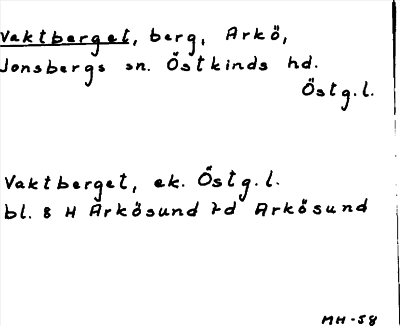 Vaktberget, berg, Arkö,
Jonsbergs sn. Östkinds hd.
Östg.l.
Vaktberget, ek. Östg.l.
bl. 8 H Arkösund rd Arkösund
MH-58